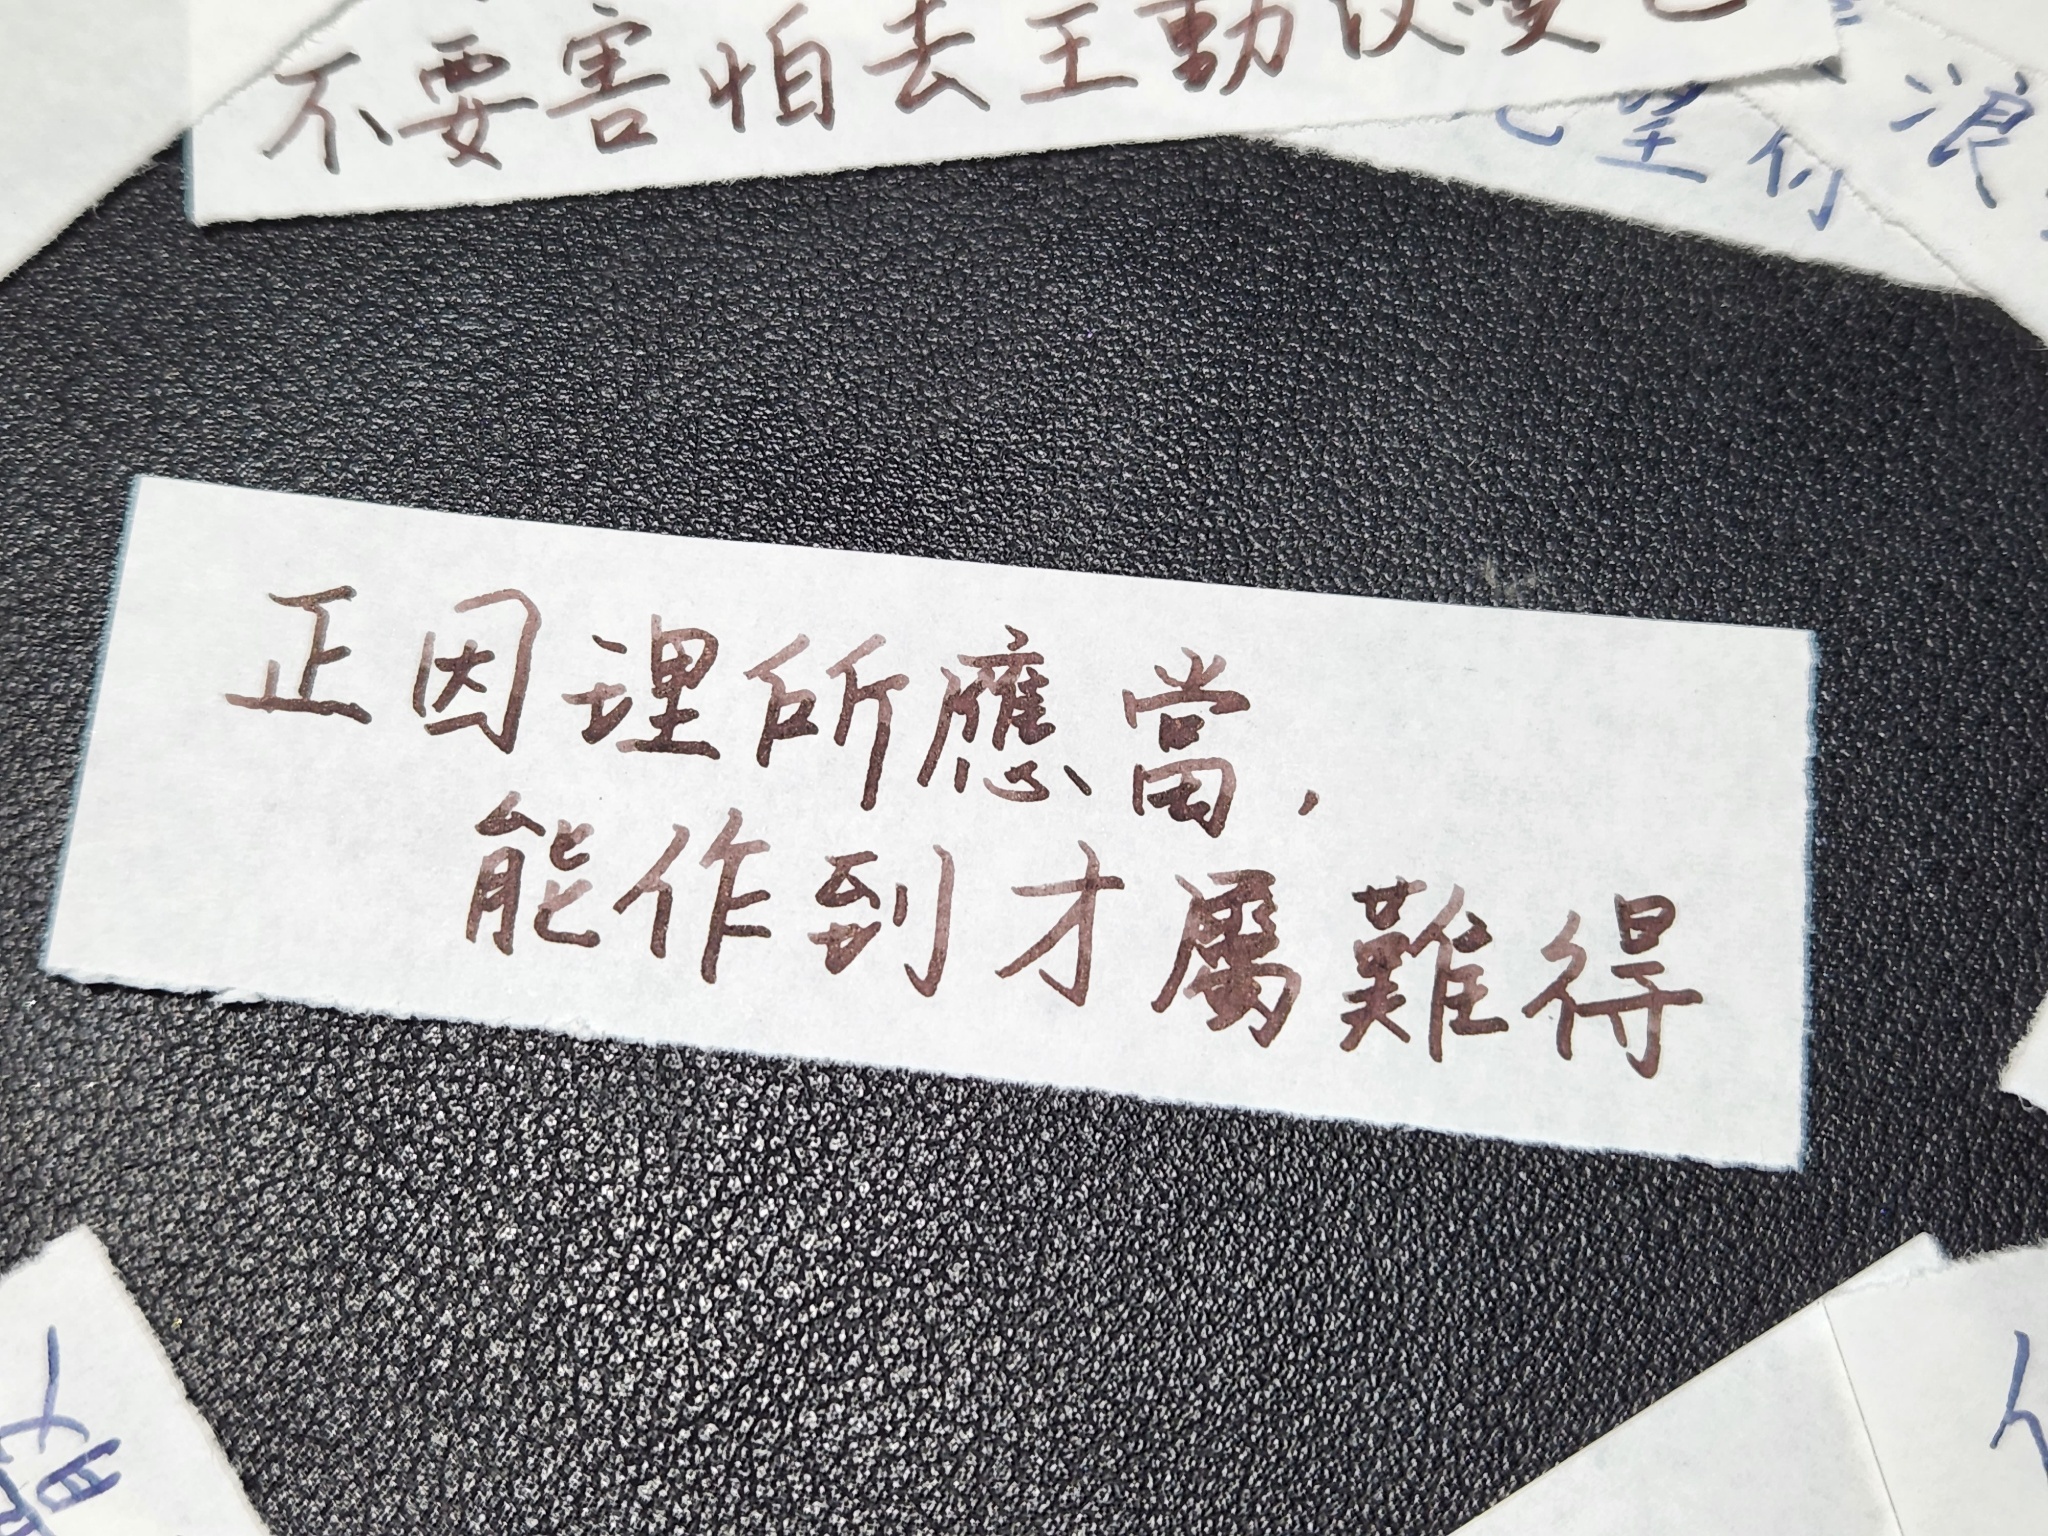 不要害怕去主動
望付
浪
正因理所應當,
能作到才屬難得